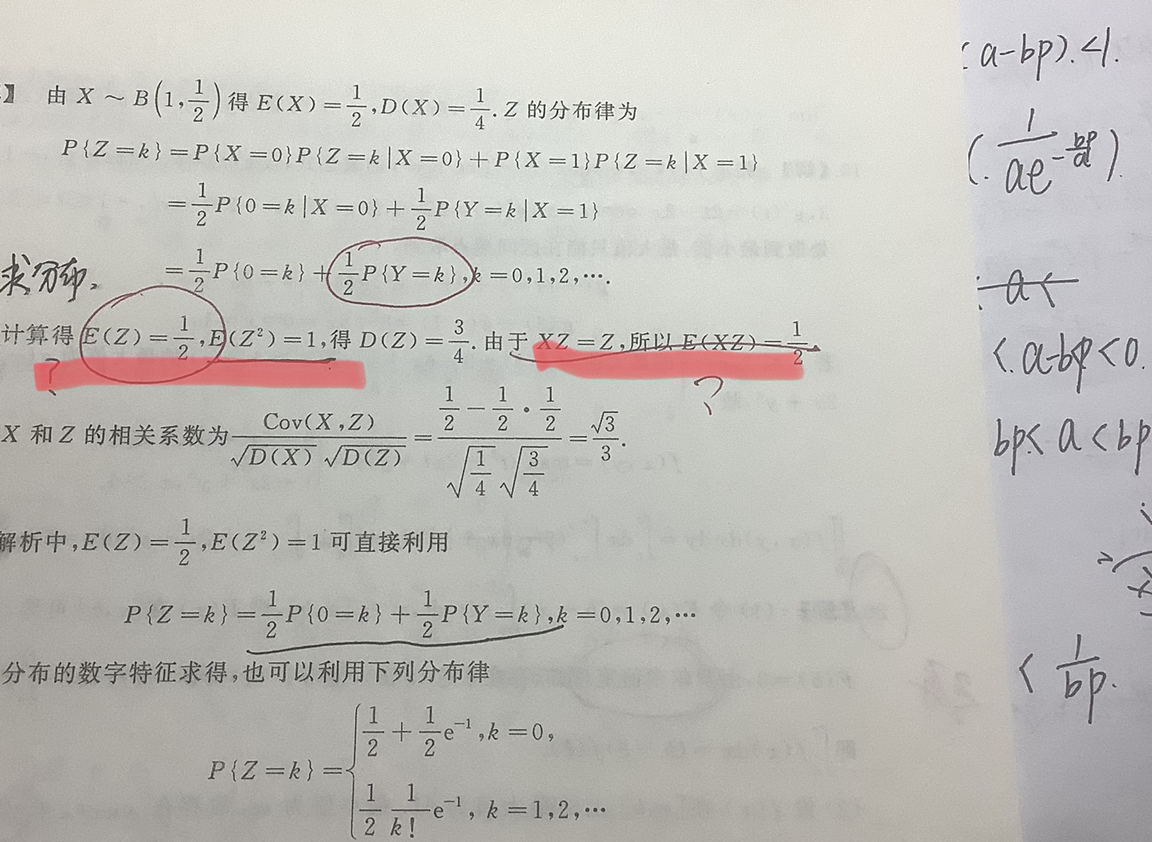 】 由 X ~ B(1, 1/2) 得 E(X) = 1/2, D(X) = 1/4. Z 的分布律为
P{Z=k} = P{X=0}P{Z=k|X=0} + P{X=1}P{Z=k|X=1}
= 1/2 P{0=k|X=0} + 1/2 P{Y=k|X=1}
= 1/2 P{0=k} + 1/2 P{Y=k}, k=0,1,2,⋯.
求分布.
计算得 E(Z) = 1/2, E(Z²) = 1, 得 D(Z) = 3/4. 由于 XZ = Z, 所以 E(XZ) = 1/2
?
?
X 和 Z 的相关系数为 Cov(X,Z)/(√D(X) √D(Z)) = (1/2 − 1/2 · 1/2)/(√(1/4) √(3/4)) = √3/3.
解析中, E(Z) = 1/2, E(Z²) = 1 可直接利用
P{Z=k} = 1/2 P{0=k} + 1/2 P{Y=k}, k=0,1,2,⋯
分布的数字特征求得, 也可以利用下列分布律
P{Z=k} = { 1/2 + 1/2 e⁻¹, k=0,
1/2 1/k! e⁻¹, k=1,2,⋯
(a-bp).<1.
a<
<.a-bp<0.
bp<a<bp
< 1/bp.